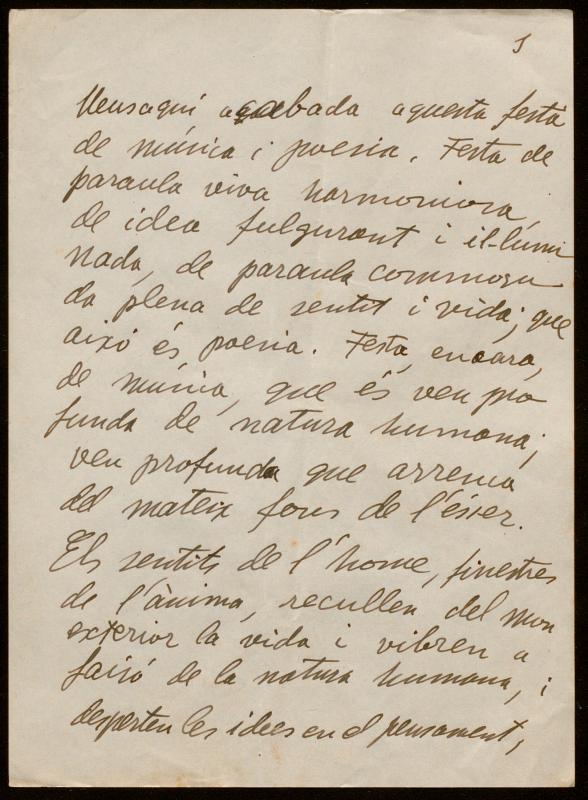 1
Veusaquí acabada aquesta festa
de música i poesia. Festa de
paraula viva harmoniosa,
de idea fulgurant i il-lumi
nada, de paraula commogu
da plena de sentit i vida; que
aixó és poesia. Festa, encara,
de música, que és veu pro
funda de natura humana;
veu profunda que arrenca
del mateix fons de l'ésser.
Els sentits de l'home, finestres
de l'ànima, recullen del mon
exterior la vida i vibren a
faisó de la natura humana, i
desperten les idees en el pensament,